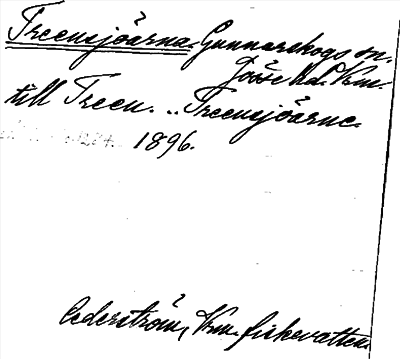 Treensjöarna. Gunnarskogs sn.
Jösse hd. Vrm.
till Treen. „Treensjöarne.
1896.
Cederström, Vrm. fiskevatten